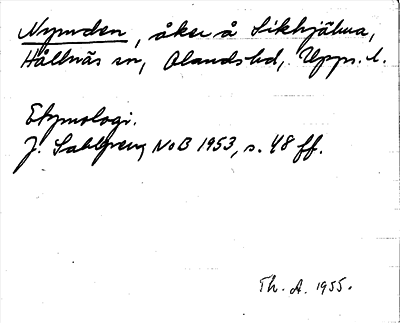 Nymden, åker å Sikhjälma,
Hållnäs sn, Olandshd, Upps. l.
Etymologi.
J. Sahlgren, NoB 1953, s. 48 ff.
Th. A. 1955.